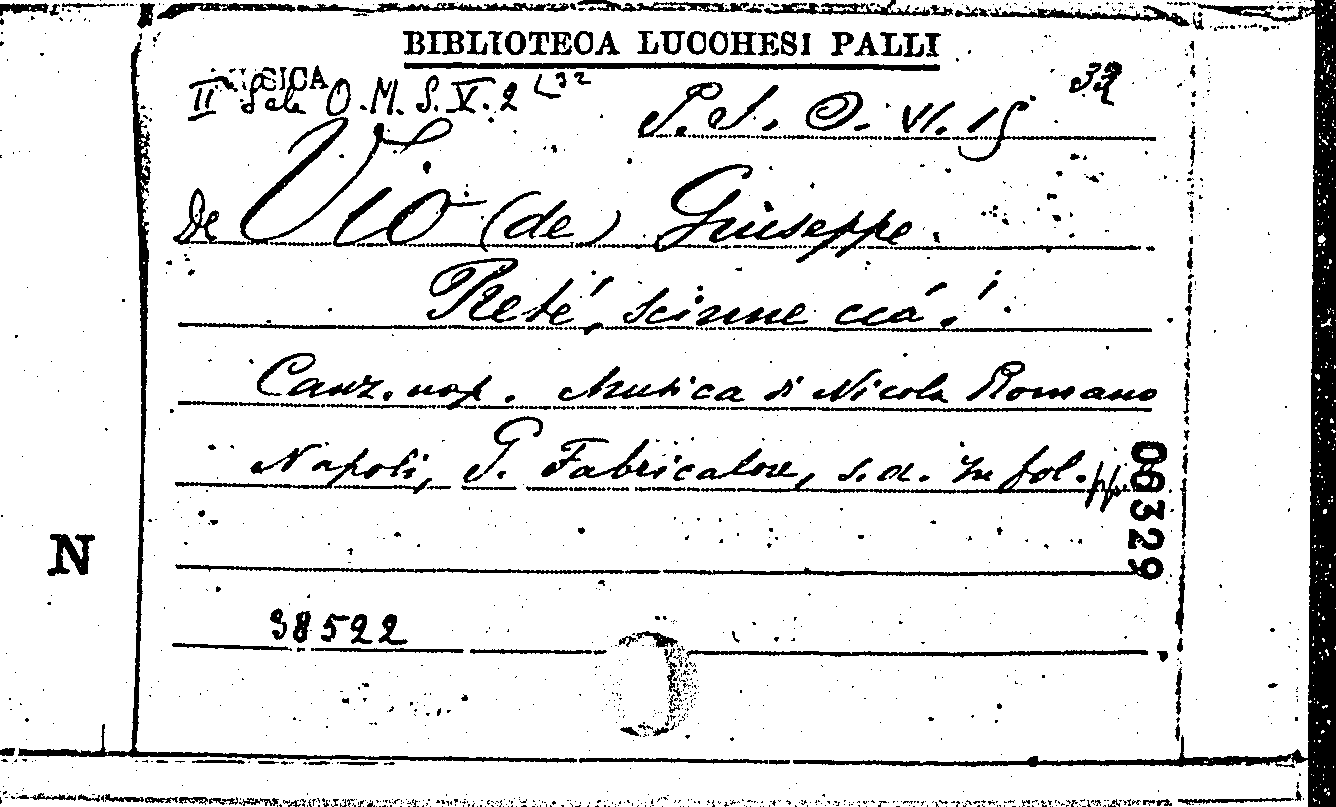 BIBLIOTECA LUCCHESI PALLI
MUSICA
II Sala O.M.S.V.2
P.S. O. VI. 15
De Vio (de) Giuseppe.
Reté, scinne ccá!
Canz. nap. Musica di Nicola Romano
Napoli, G. Fabricatore, s.d. in fol.
06329
N
38522